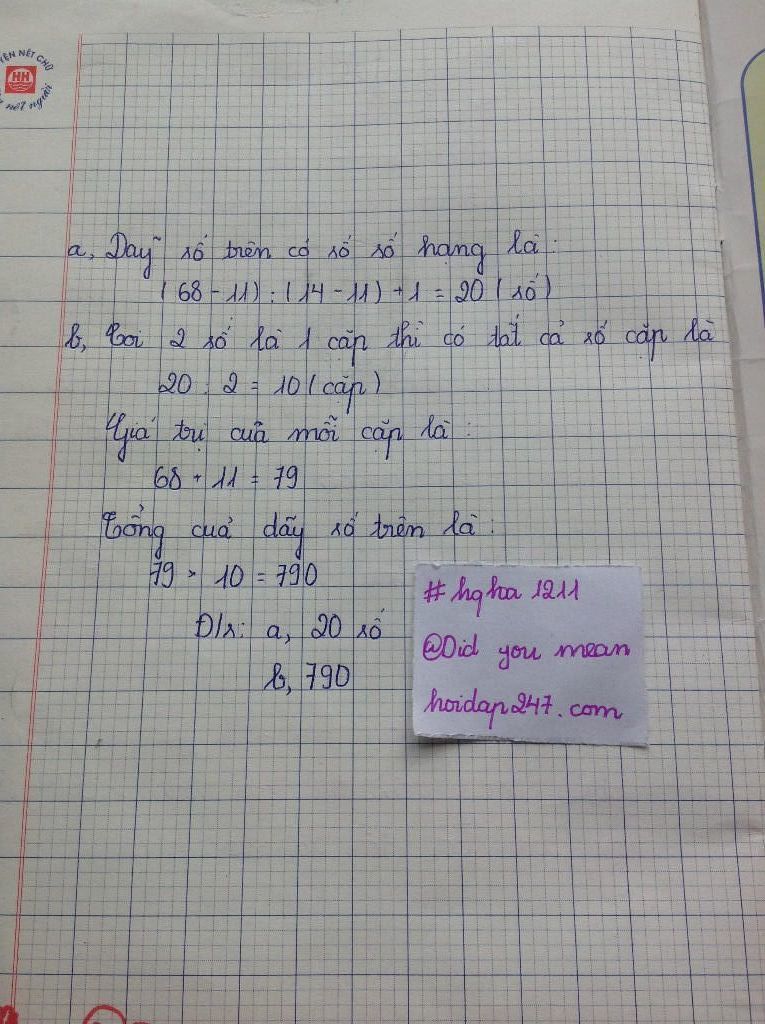 YỆN NÉT CHỮ
HH
nết người
a, Dãy số trên có số số hạng là:
(68 - 11) : (14 - 11) + 1 = 20 (số)
b, Coi 2 số là 1 cặp thì có tất cả số cặp là
20 : 2 = 10 (cặp)
Giá trị của mỗi cặp là:
68 + 11 = 79
Tổng của dãy số trên là:
79 × 10 = 790
Đ/s: a, 20 số
b, 790
#hqha1211
@Did you mean
hoidap247.com